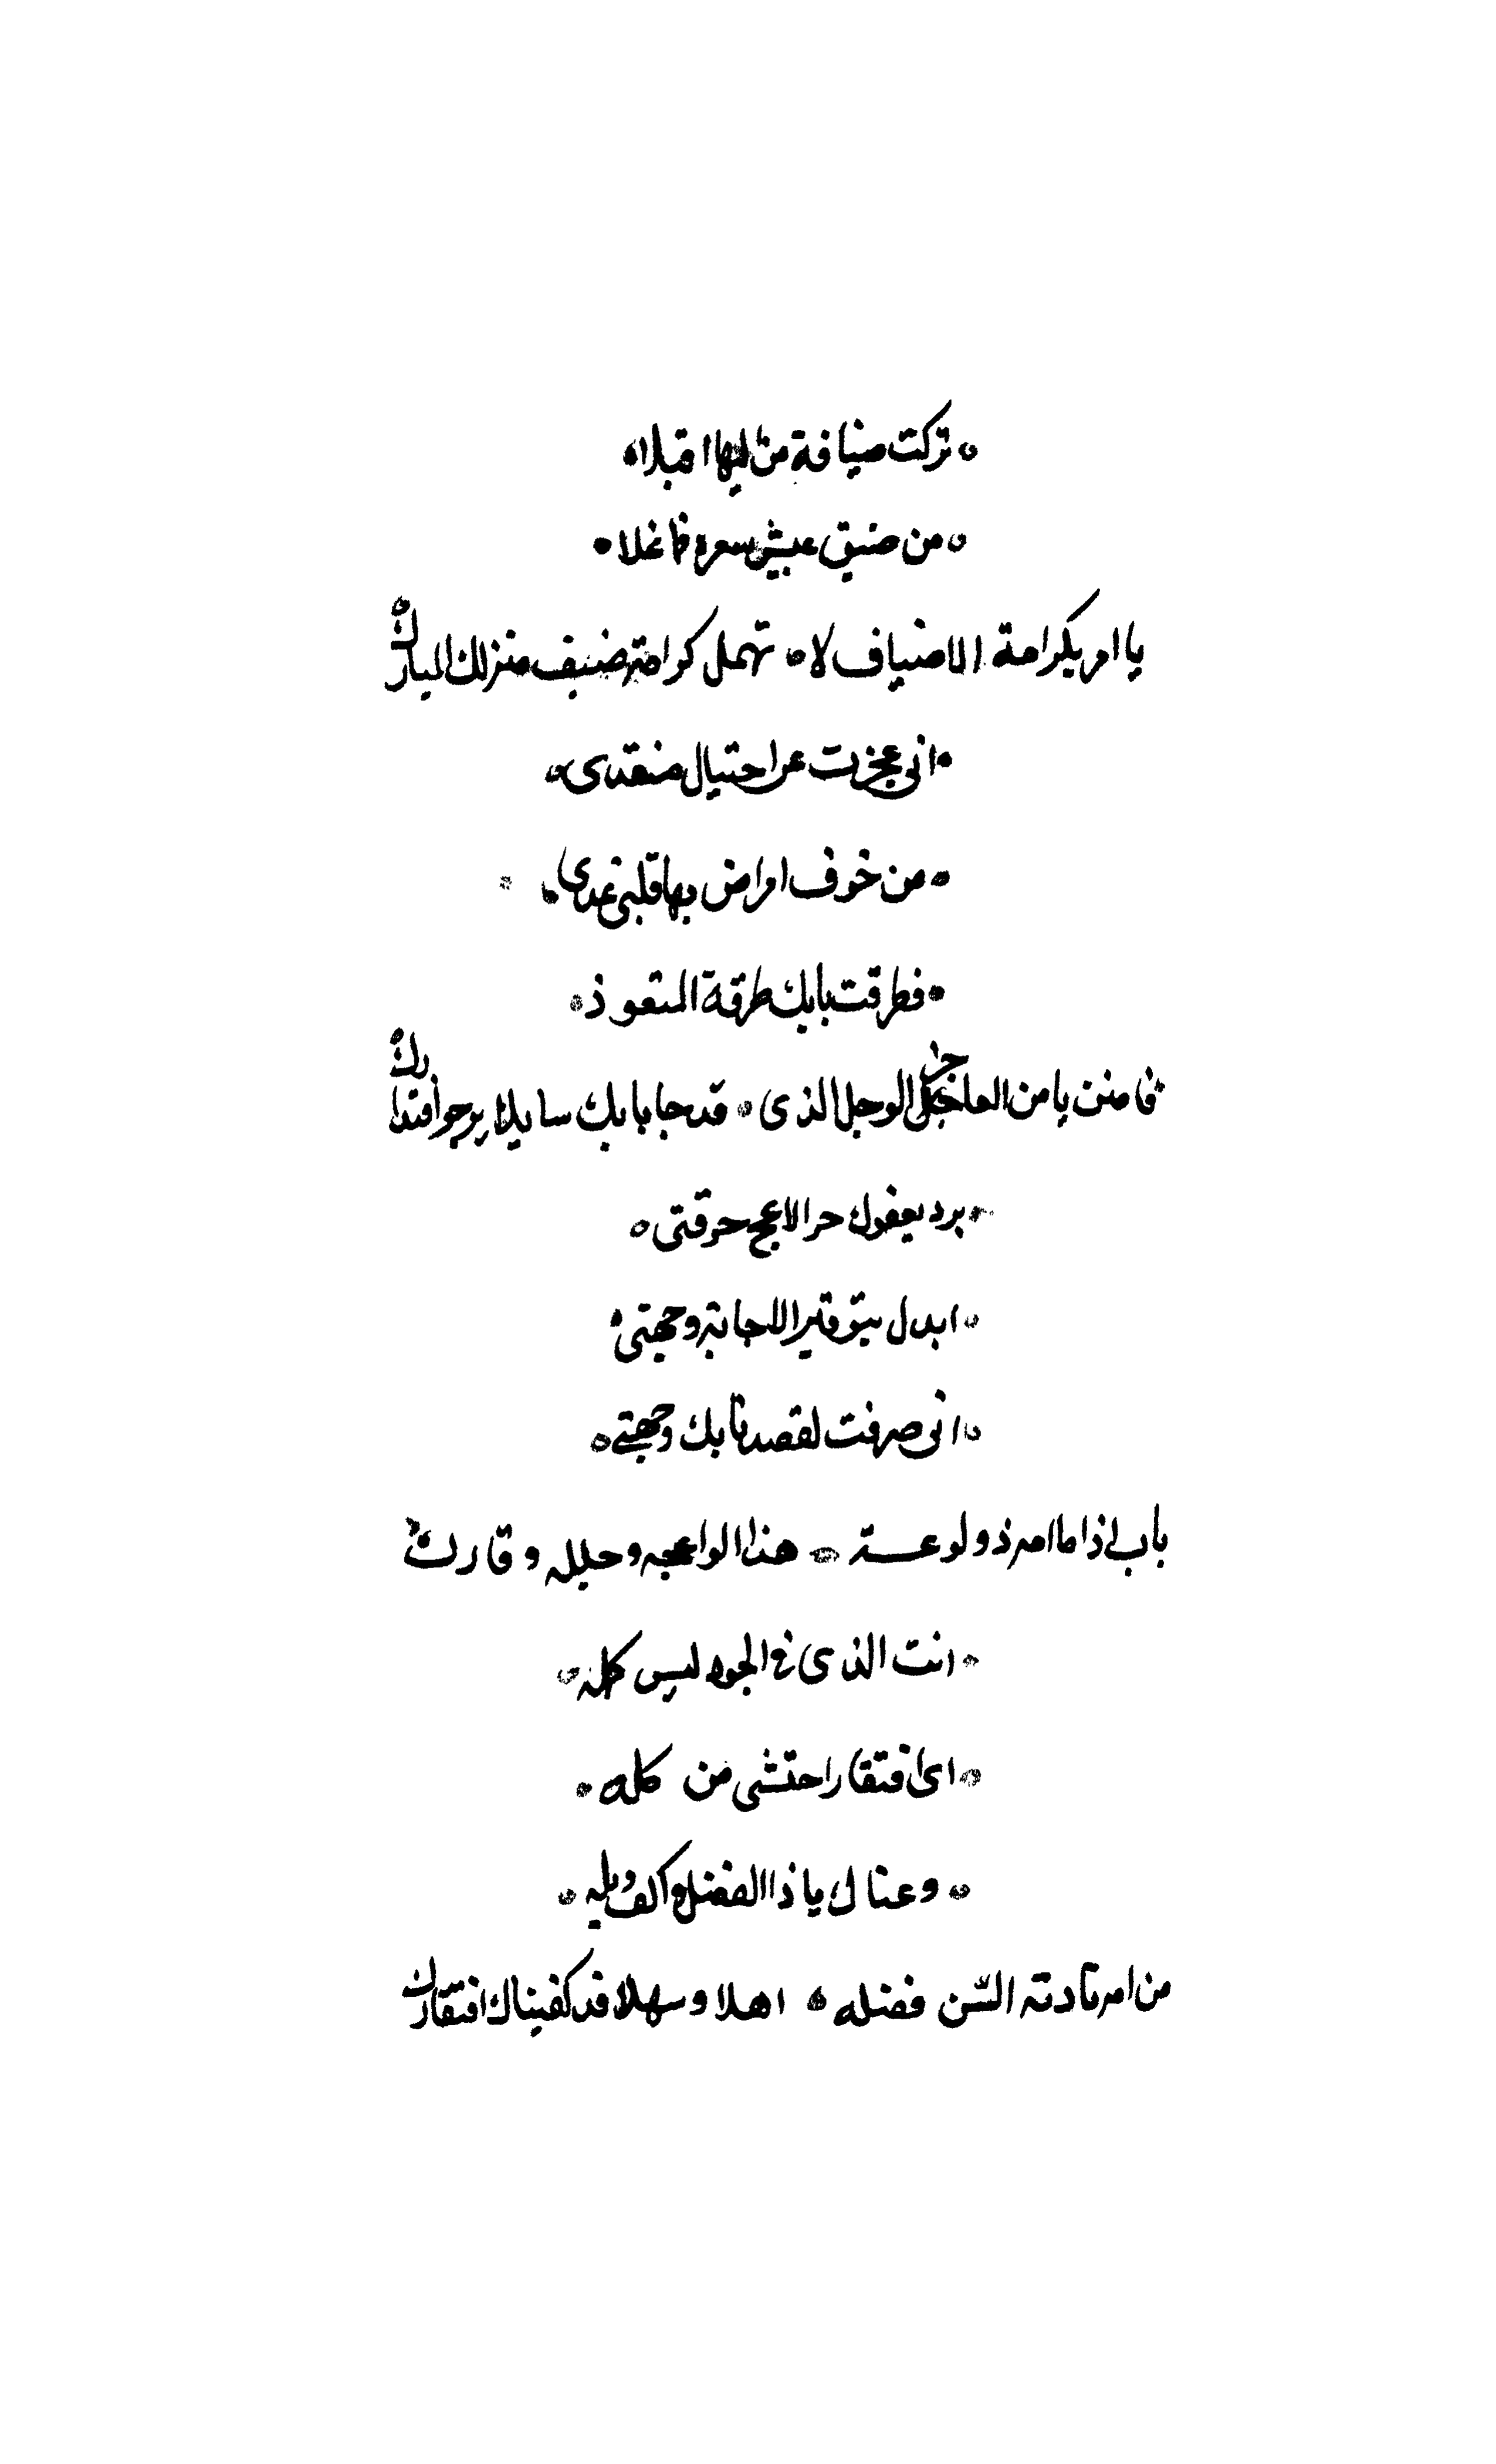 تركت ضيافة من اليها اقبلا
من ضيق عيش سعره قد غلا
يا امر بكرامة الاضياف لا تهمل كرامة ضيف منزلك المبارك
انى عجزت عن احتيال منقدى
من خوف امراض بها قلبى غدى
فطرقت بابك طرقة المتعوذ
فامنن يا من العاجز الوجل الذى قد جا بابك سايلا يرجو اقتدارك
برد بعفوك حر لاعج حرقتى
ابدل بتوقير اللجا
انى صرفت لقصد بابك وجهتى
باب اذا ما امه ذو لوعة هذا لواعجه وحلله وقارك
انت الذى فى الجود ليس كمله
اى افتقار احتشى من كله
وعنا لى يا ذا الفضل واكف وبله
من ام نادته السن فضله اهلا وسهلا قد كفيناك افتقارك